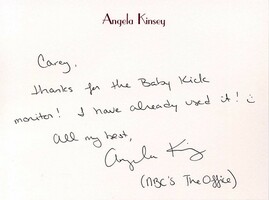 Angela Kinsey
Carey,
Thanks for the Baby Kick
monitor! I have already used it!
All my best,
Angela K
(NBC's The Office)